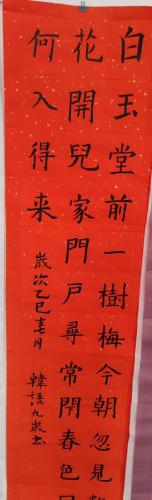 白玉堂前一樹梅今朝忽見
花開兒家門戶尋常閉春色
何入得来
歲次乙巳春月 韓語九歲书